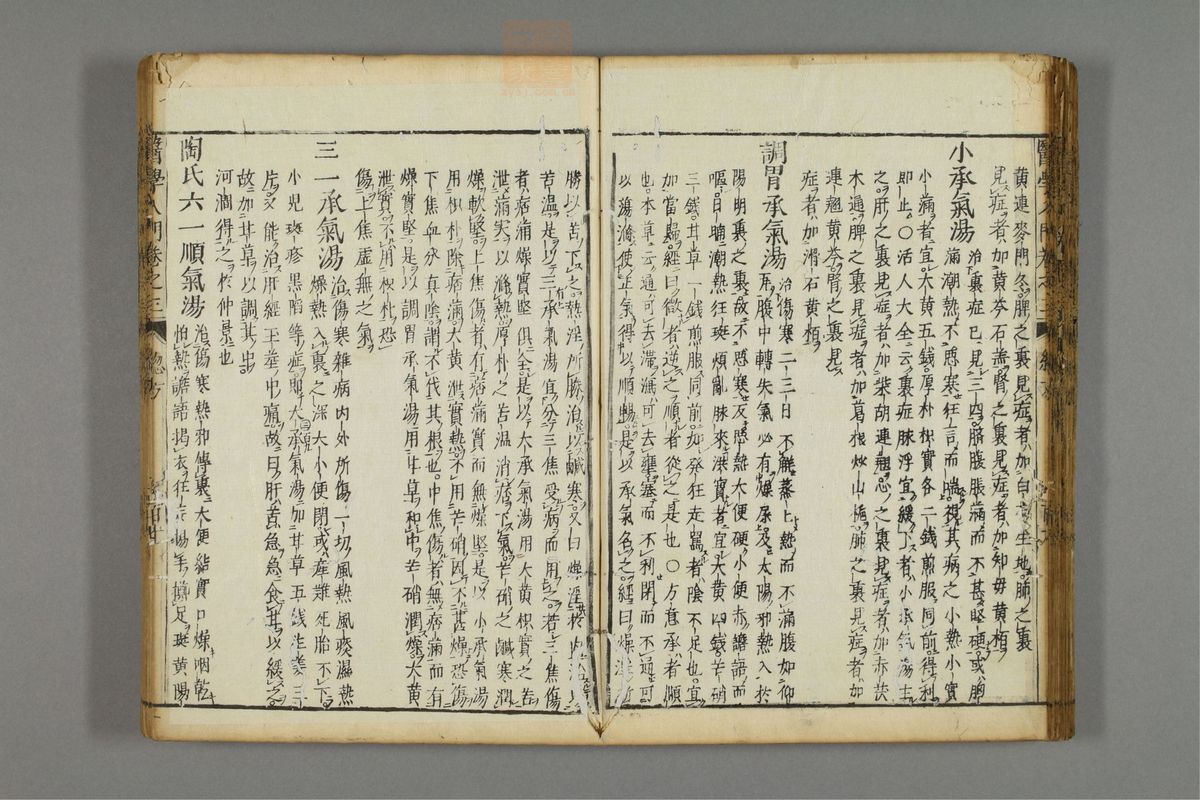 黄連麥門冬脾之裏見症者加白芍生地肺之裏
見症者加黄芩石膏腎之裏見症者加知母黄栢
小承氣湯
治裏症已見三四胳腹脹滿而不甚堅硬或胸
滿潮熱不惡寒狂言而喘視其病之小熱小實
小滿者宜大黄五錢厚朴枳實各二錢煎服同前得利
即止〇活人大全云裏症脉浮宜緩下者小承氣湯主
之肝之裏見症者加柴胡連翹心之裏見症者加赤茯
木通脾之裏見症者加葛根炒山梔肺之裏見症者加
連翹黄芩腎之裏見
症者加滑石黄栢
調胃承氣湯
治傷寒二三日不觧蒸上熱而不滿腹如仰
瓦腹中轉失氣必有燥屎及太陽邪熱入於
陽明裏之裏故不惡寒反惡熱大便硬小便赤譫語而
嘔日晡潮熱狂斑煩亂脉來洪實者宜大黄四錢芒硝
三錢甘草一錢煎服同前如發狂走罵者陰不足也宜
加當歸經曰微者逆之順者從之是也〇方意承者順
也本草云通可去滯泄可去壅塞而不利閉而不通可
以蕩滌使正氣得以順暢是以承氣名之經曰燥淫所
勝以苦下之熱淫所勝治以鹹寒又曰燥淫於内治以
苦温是以三承氣湯宜分三焦受病而用之若三焦傷
者痞滿燥實堅俱全是以大承氣湯用大黄枳實之苦
泄滿實以滌熱厚朴之苦温消痞下氣芒硝之鹹寒潤
燥軟堅上焦傷者有痞滿實而無燥堅是以小承氣湯
用枳朴除痞滿大黄泄實熱不用芒硝因不甚燥恐傷
下焦血分真陰謂不伐其根也中焦傷者無痞滿而有
燥實堅是以調胃承氣湯用甘草和中芒硝潤燥大黄
泄實不用枳朴恐
傷上焦虛無之氣
三一承氣湯
治傷寒雜病内外所傷一切風熱風痰濕熱
燥熱入裏之深大小便閉或產難死胎不下
小兒斑疹黒陷等症即大承氣湯加甘草五錢生姜三
片又能治肝經玉莖中痛故曰肝苦急急食甘以緩之
故加甘草以調其
河澗得之於仲景也
陶氏六一順氣湯
治傷寒熱邪傳裏大便結實口燥咽乾
怕熱譫語揭衣狂妄揚手擲足斑黄陽
醫學入門卷之三